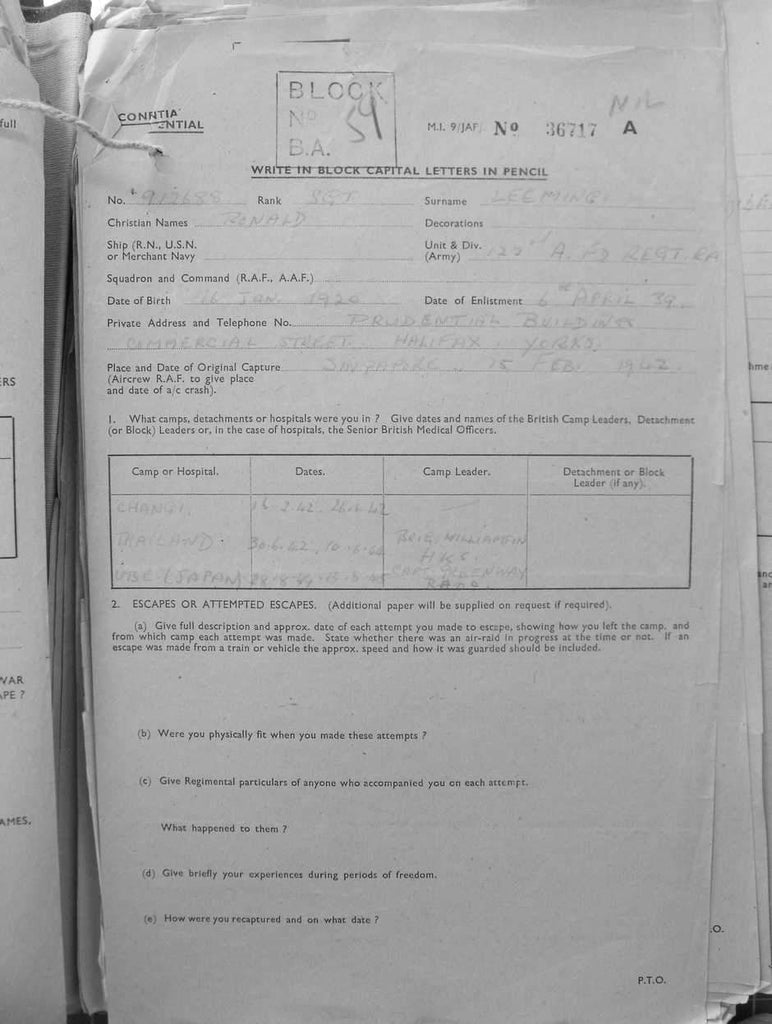 full
CONNTIA
ENTIAL
BLOCK
No 59
B.A.
M.I. 9/JAP No 36717 A
NIL
WRITE IN BLOCK CAPITAL LETTERS IN PENCIL
No. 912688 Rank SGT Surname LEEMING
Christian Names RONALD Decorations
Ship (R.N., U.S.N. Unit & Div.
or Merchant Navy (Army) A. FD REGT RA
Squadron and Command (R.A.F., A.A.F.)
Date of Birth 16 JAN 1920 Date of Enlistment 6TH APRIL 39
Private Address and Telephone No. PRUDENTIAL BUILDINGS
COMMERCIAL STREET. HALIFAX. YORKS.
Place and Date of Original Capture SINGAPORE. 15 FEB. 1942.
(Aircrew R.A.F. to give place
and date of a/c crash).
1. What camps, detachments or hospitals were you in ? Give dates and names of the British Camp Leaders, Detachment
(or Block) Leaders or, in the case of hospitals, the Senior British Medical Officers.
Camp or Hospital. Dates. Camp Leader. Detachment or Block
Leader (if any).
CHANGI. 15.2.42. 26.6.42
THAILAND. 30.6.42, 10.6.44 BRIG. WILLIAMSON
H.K.S.
UBE (JAPAN) CAPT GREENWAY
2. ESCAPES OR ATTEMPTED ESCAPES. (Additional paper will be supplied on request if required).
(a) Give full description and approx. date of each attempt you made to escape, showing how you left the camp, and
from which camp each attempt was made. State whether there was an air-raid in progress at the time or not. If an
escape was made from a train or vehicle the approx. speed and how it was guarded should be included.
(b) Were you physically fit when you made these attempts ?
(c) Give Regimental particulars of anyone who accompanied you on each attempt.
What happened to them ?
(d) Give briefly your experiences during periods of freedom.
(e) How were you recaptured and on what date ?
P.T.O.
ERS
WAR
APE ?
AMES.
.O.